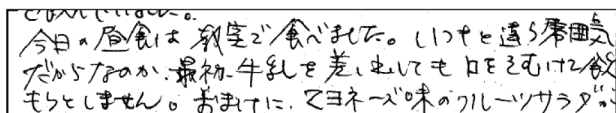 今日の昼食は教室で食べました。いつもと違う雰囲気
だからなのか、最初、牛乳を差し出しても口をそむけて飲
もうとしません。おまけに、マヨネーズ味のフルーツサラダが